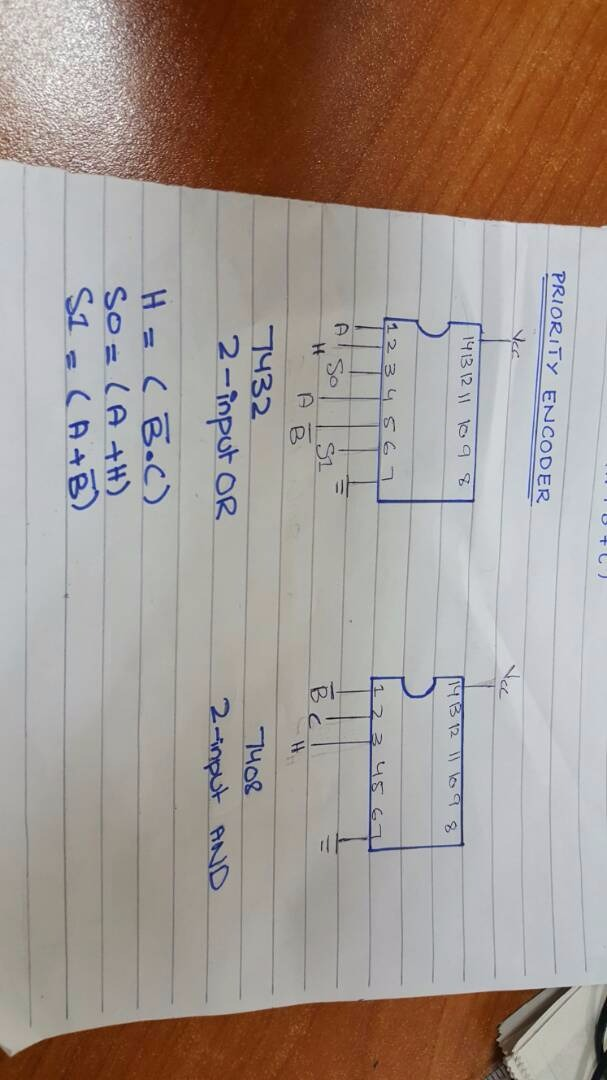 PRIORITY ENCODER
Vcc
14 13 12 11 10 9 8
1 2 3 4 5 6 7
A H S0 A B̅ S1
7432
2-input OR
Vcc
14 13 12 11 10 9 8
1 2 3 4 5 6 7
B̅ C H
7408
2-input AND
H = (B̅•C)
S0 = (A+H)
S1 = (A+B̅)